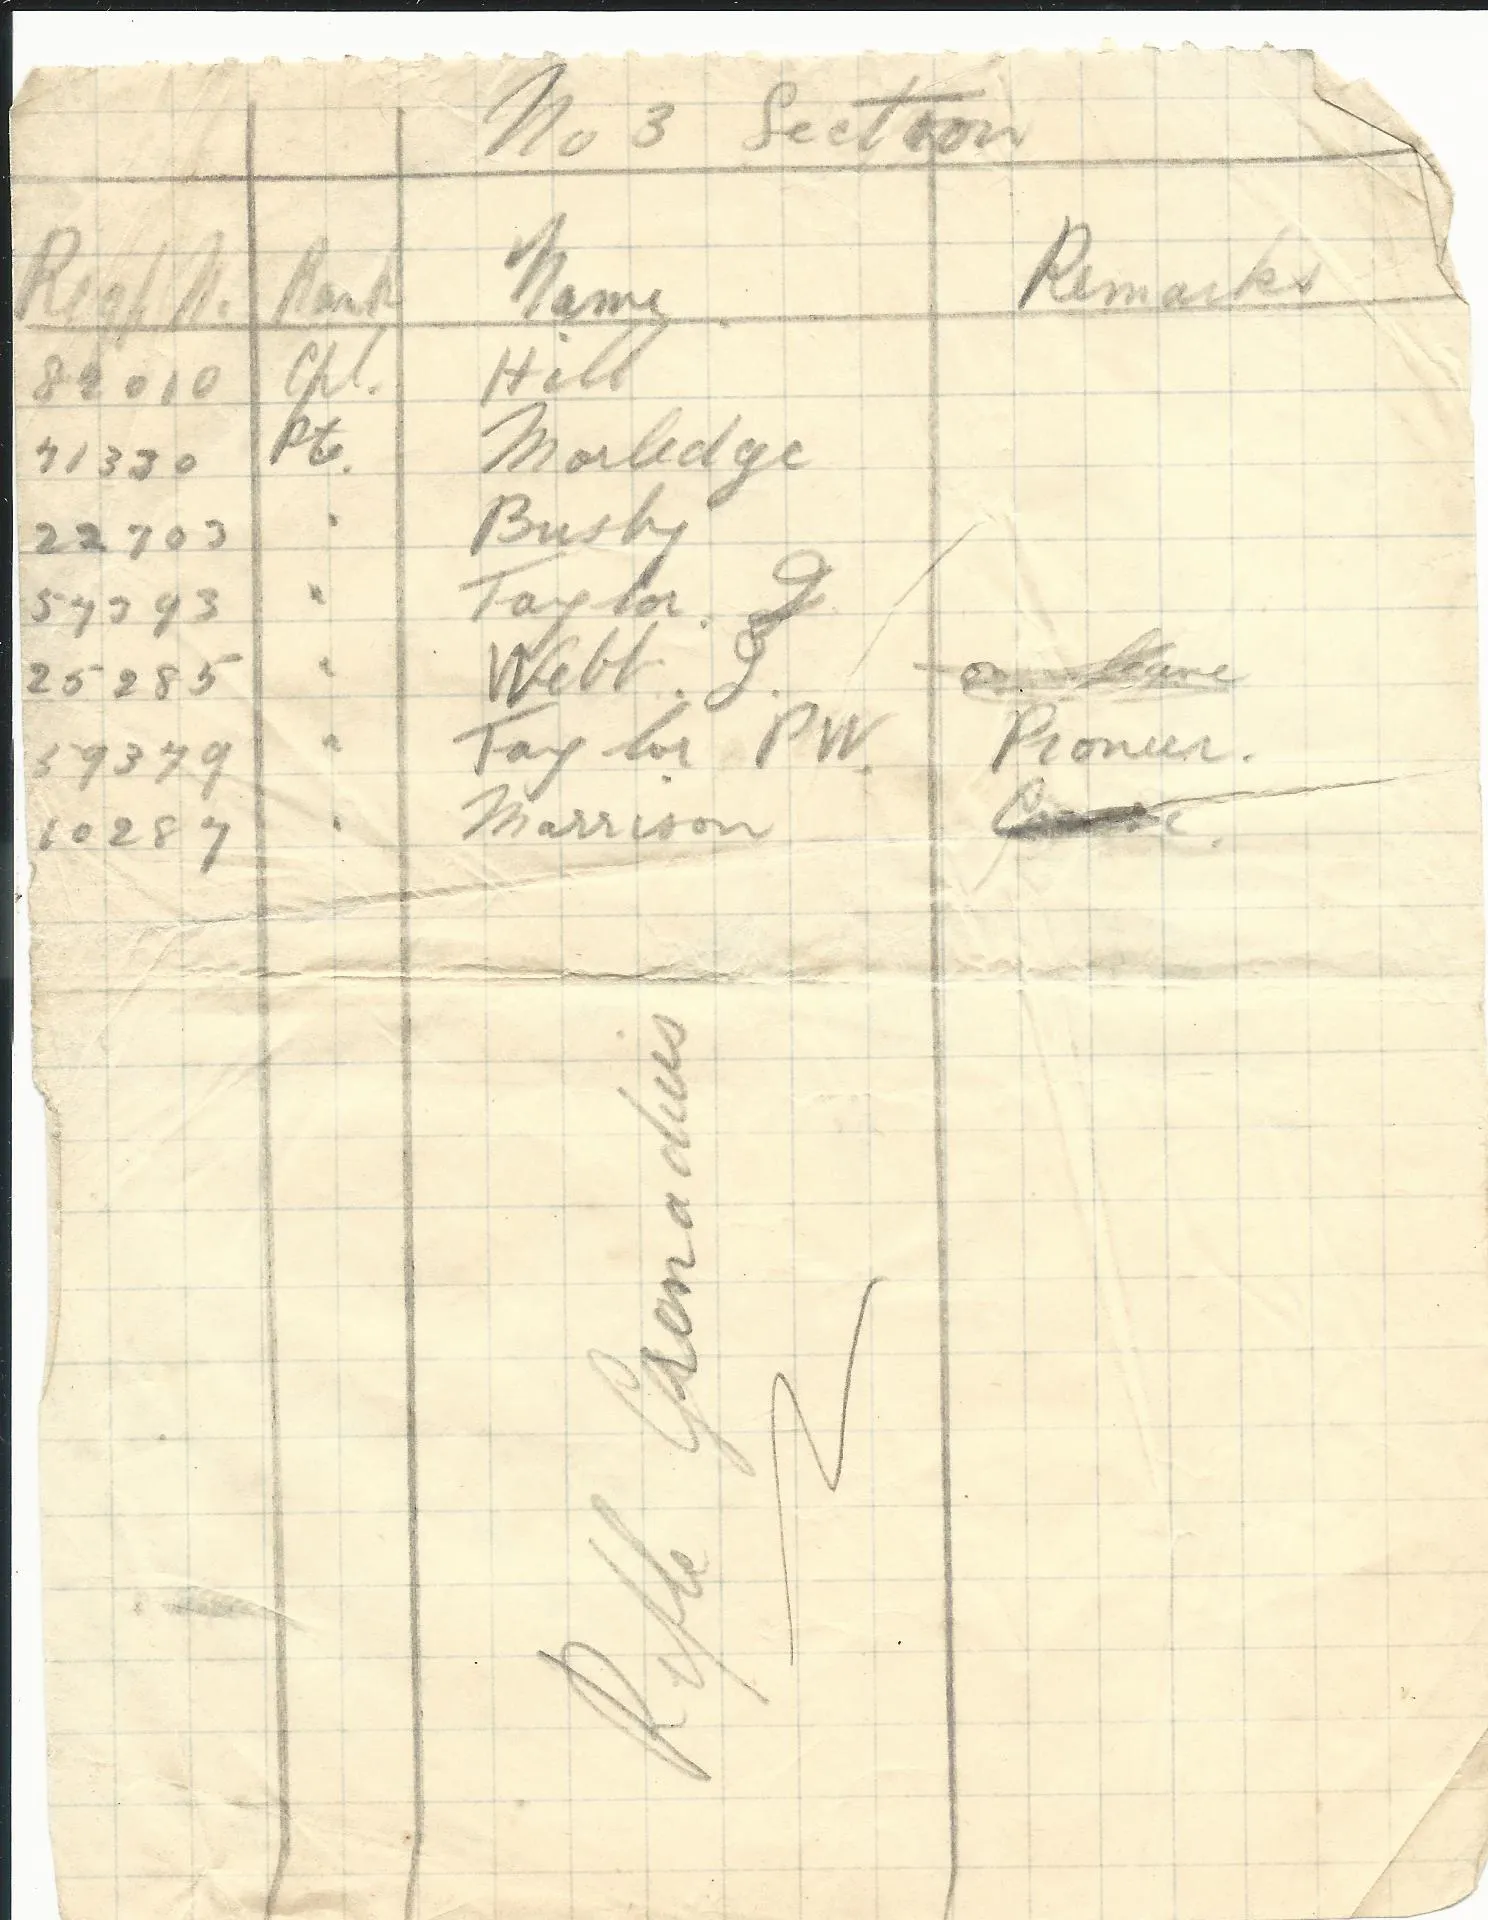 No 3 Section
Regtl No. Rank Name Remarks
82010 Cpl. Hill
71330 Pte. Morledge
22703 " Busby
57793 " Taylor. J
25285 " Webb. J. on leave
59379 " Taylor PW. Pioneer.
10287 " Marrison
Rifle Grenadiers